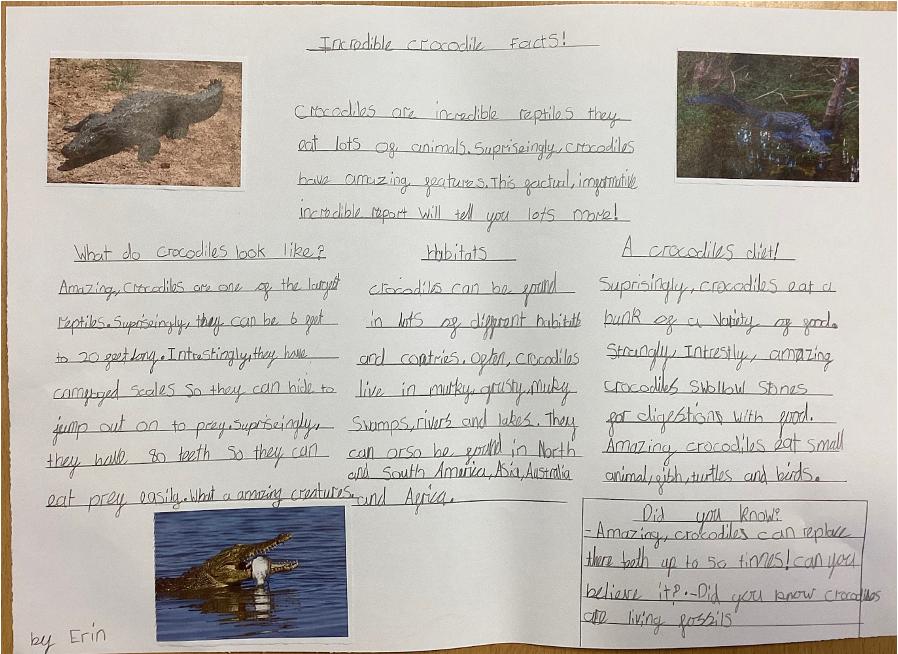 Incredible crocodile Facts!
Crocodiles are incredible reptiles they
eat lots of animals. Supriseingly, crocodiles
have amazing features. This factual, imformative
incredible report will tell you lots more!
What do crocodiles look like?
Amazing, Crocodiles are one of the largest
reptiles. Supriseingly, they can be 6 feet
to 20 feet long. Intrestingly, they have
camorged scales so they can hide to
jump out on to prey. Supriseingly,
they have 80 teeth so they can
eat prey easily. What a amazing creatures.
Habitats
crocodiles can be found
in lots of different habitats
and contries. Often, crocodiles
live in murky, grusty, mucky
Swamps, rivers and lakes. They
can orso be found in North
and South America, Asia, Australia
and Africa.
A crocodiles diet!
Suprisingly, crocodiles eat a
bunk of a Variety of food.
Strangly, Intrestly, amazing
crocodiles Swollow Stones
for digestions with food.
Amazing crocodiles eat small
animal, fish, turtles and birds.
Did you know?
- Amazing, crocodiles can replace
there teeth up to 50 times! can you
believe it?.-Did you know crocodiles
are living fossils
by Erin